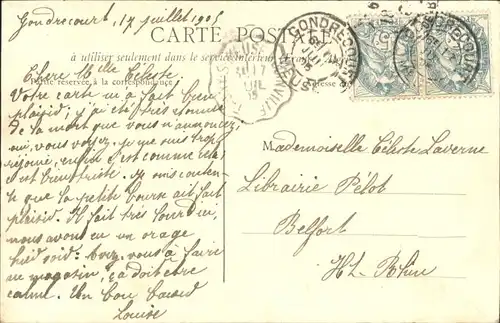 Gondrecourt, 17 juillet 1905
CARTE POSTALE
à utiliser seulement dans le service intérieur
réservée à la correspondance
Chère Mlle Céleste.
Votre carte m'a fait bien
plaisir; j'ai été très étonnée
de la mort que vous m'annoncez;
oui, vous voyez, je me suis trop
réjouie, enfin c'est comme cela,
c'est bien triste. Je suis contente
que la petite bourse ait fait
plaisir. Il fait très lourd ici,
nous avons eu un orage
hier soir. Avez-vous à faire
au magasin, ça doit être
calme. Un bon baiser
Louise
GONDRECOURT
MEUSE
Mademoiselle Céleste Laverne
Librairie Pélot
Belfort
Ht. Rhin